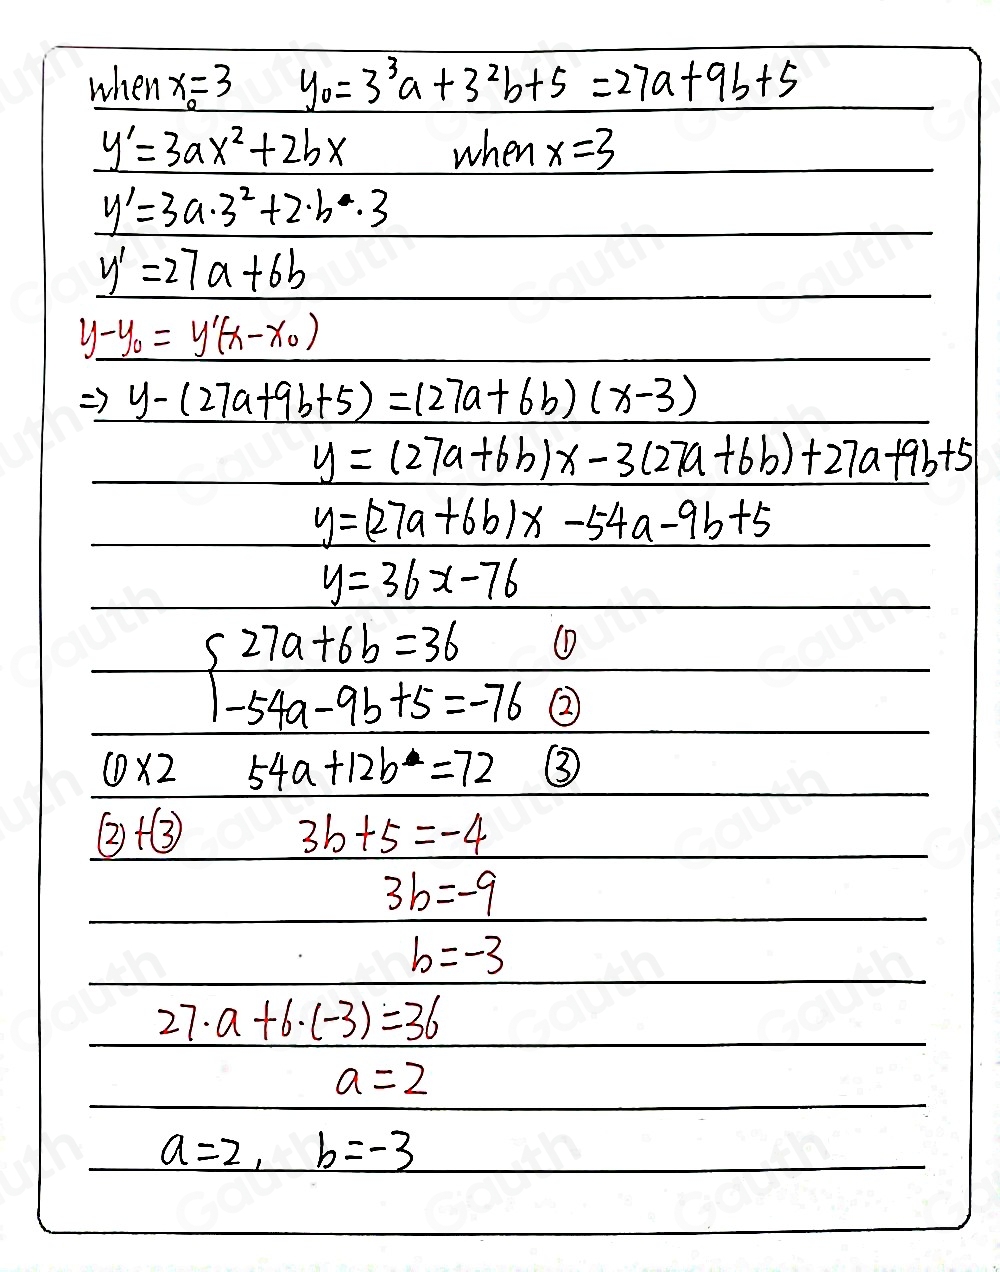 when x₀=3 y₀=3³a+3²b+5 =27a+9b+5
y'=3ax²+2bx when x=3
y'=3a·3²+2·b·3
y'=27a+6b
y-y₀=y'(x-x₀)
⇒ y-(27a+9b+5)=(27a+6b)(x-3)
y=(27a+6b)x-3(27a+6b)+27a+9b+5
y=(27a+6b)x-54a-9b+5
y=36x-76
{27a+6b=36 ①
-54a-9b+5=-76 ②
①×2 54a+12b=72 ③
②+③ 3b+5=-4
3b=-9
b=-3
27·a+6·(-3)=36
a=2
a=2, b=-3
Gauth